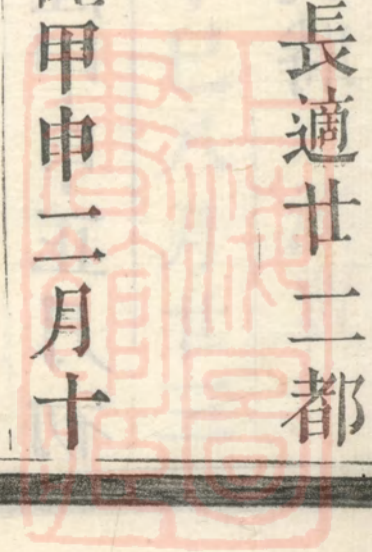 長適廿二都
甲申二月十